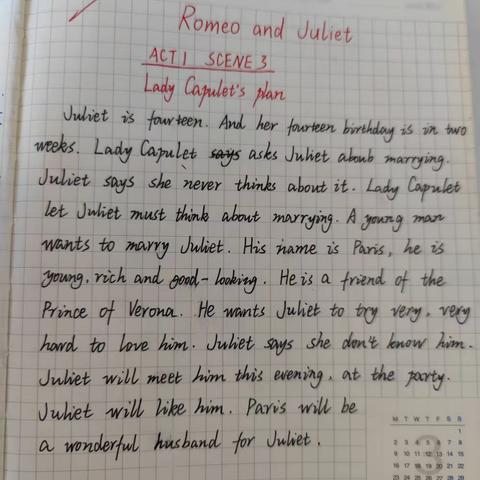 Romeo and Juliet
ACT 1 SCENE 3
Lady Capulet's plan
Juliet is fourteen. And her fourteen birthday is in two
weeks. Lady Capulet says asks Juliet about marrying.
Juliet says she never thinks about it. Lady Capulet
let Juliet must think about marrying. A young man
wants to marry Juliet. His name is Paris, he is
young, rich and good-looking. He is a friend of the
Prince of Verona. He wants Juliet to try very, very
hard to love him. Juliet says she don't know him.
Juliet will meet him this evening, at the party.
Juliet will like him. Paris will be
a wonderful husband for Juliet.
M T W T F S S
1
2 3 4 5 6 7 8
9 10 11 12 13 14 15
16 17 18 19 20 21 22
23 24 25 26 27 28 29